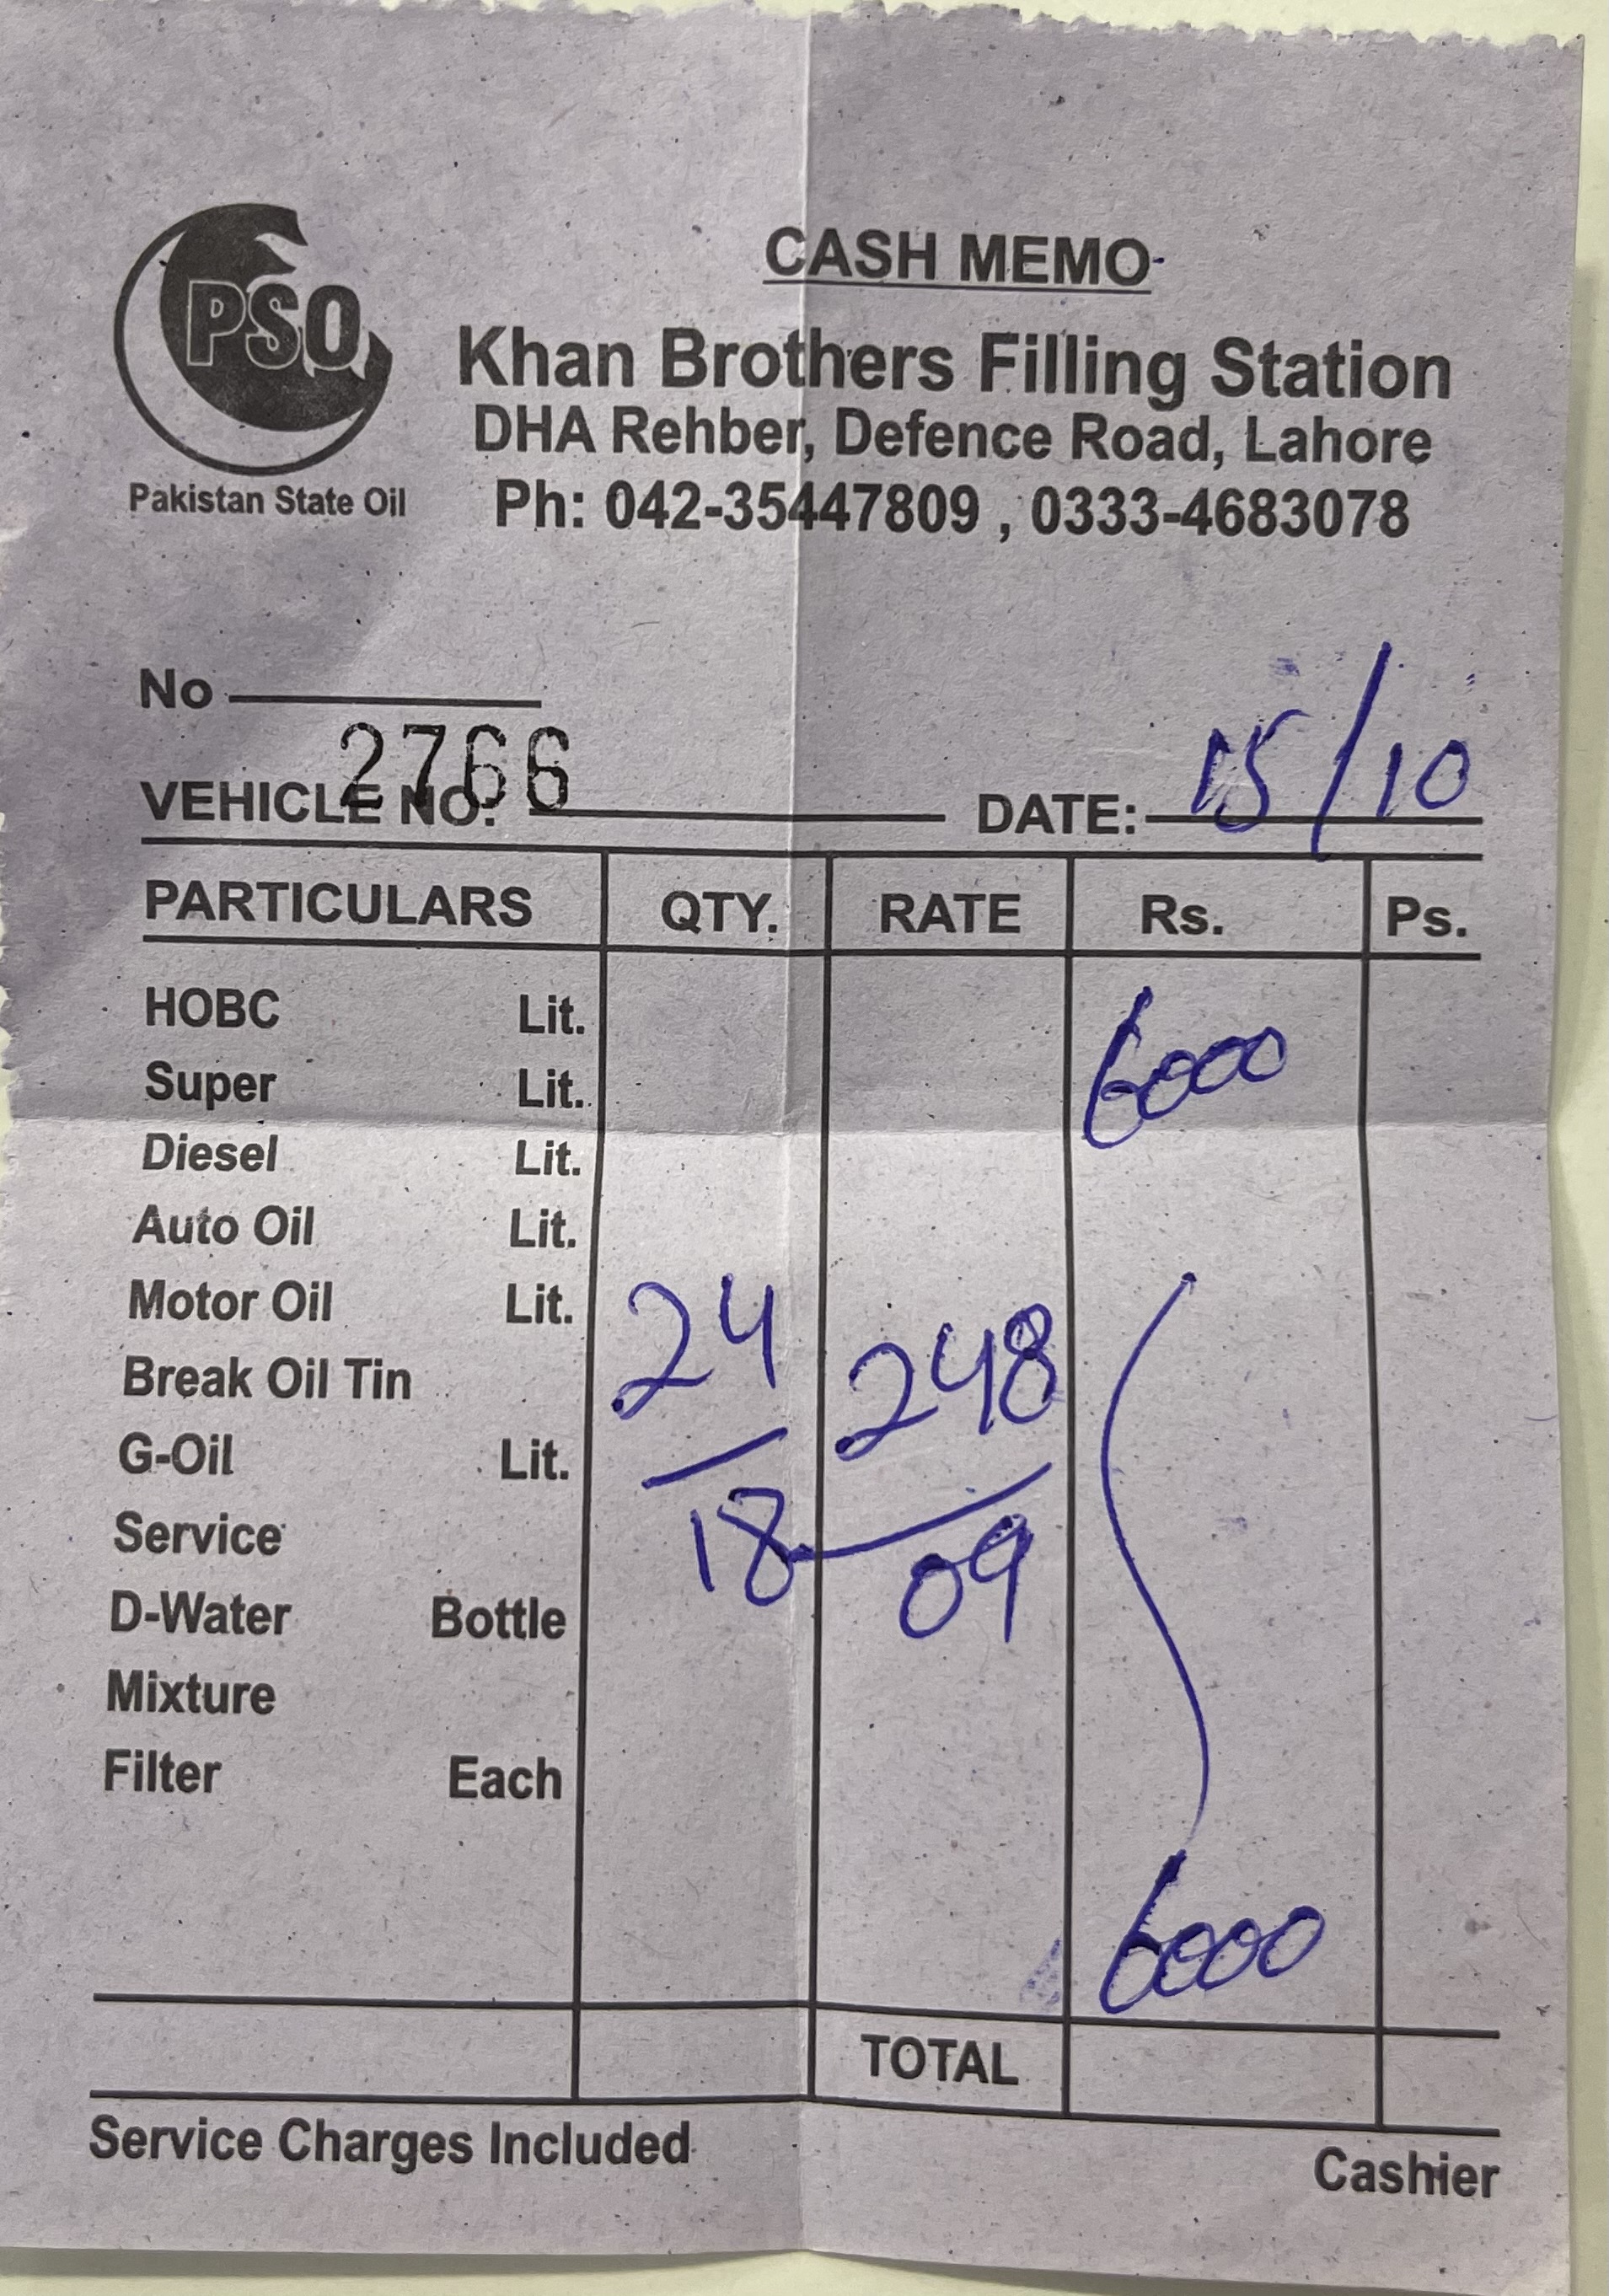 PSO
Pakistan State Oil
CASH MEMO
Khan Brothers Filling Station
DHA Rehber, Defence Road, Lahore
Ph: 042-35447809 , 0333-4683078
No
2766
VEHICLE NO. DATE: 15/10
PARTICULARS QTY. RATE Rs. Ps.
HOBC Lit. 6000
Super Lit.
Diesel Lit.
Auto Oil Lit.
Motor Oil Lit. 24 248
Break Oil Tin
G-Oil Lit.
Service 18 09
D-Water Bottle
Mixture
Filter Each
6000
TOTAL
Service Charges Included
Cashier